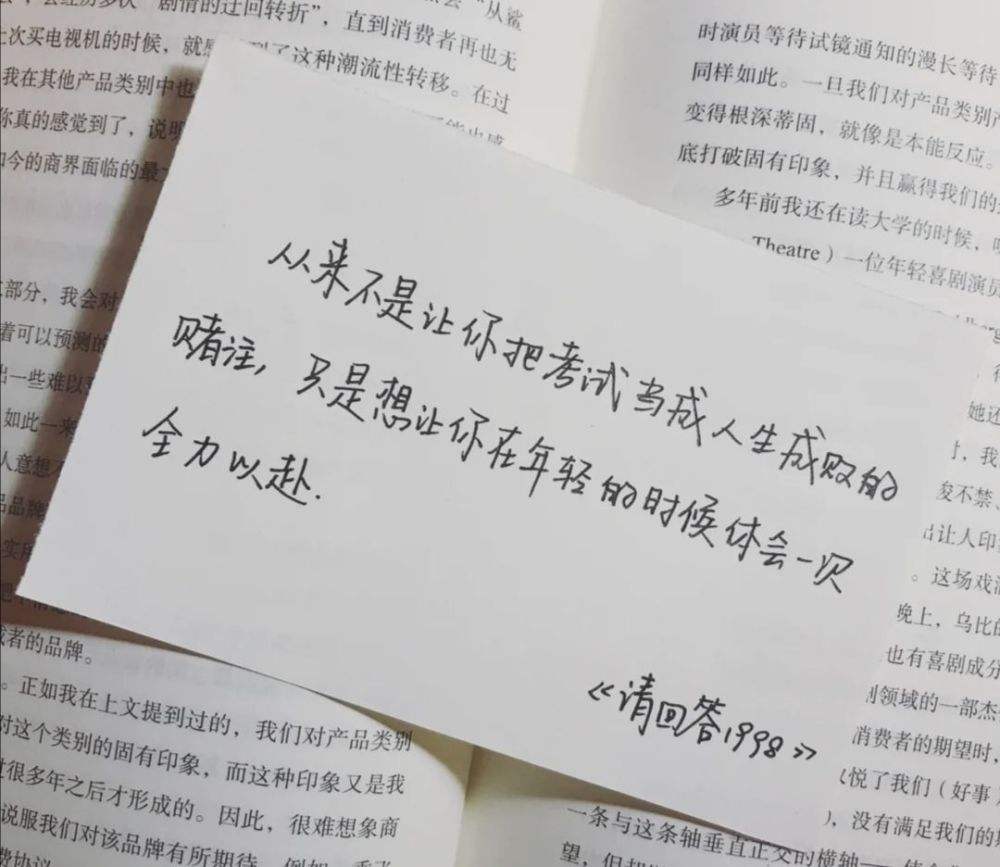 从来不是让你把考试当成人生成败的
赌注，只是想让你在年轻的时候体会一次
全力以赴.
《请回答1998》
直到消费者再也无
上次买电视机的时候，就
了这种潮流性转移。在过
我在其他产品类别中也
你真的感觉到了，说明
如今的商界面临的最
部分，我会对
着可以预测的
出一些难以
如此一来
人意想不
品牌
者的品牌。
。正如我在上文提到过的，我们对产品类别
对这个类别的固有印象，而这种印象又是我
过很多年之后才形成的。因此，很难想象商
说服我们对该品牌有所期待。例如
时演员等待试镜通知的漫长等待
同样如此。一旦我们对产品类别
变得根深蒂固，就像是本能反应。
底打破固有印象，并且赢得我们的
多年前我还在读大学的时候，
Theatre）一位年轻喜剧演员
她还
，我
俊不禁、
出让人印
。这场戏
晚上，乌比的
也有喜剧成分
领域的一部杰
消费者的期望时，
悦了我们（好事
），没有满足我们的
一条与这条轴垂直正交的横轴
望，但却